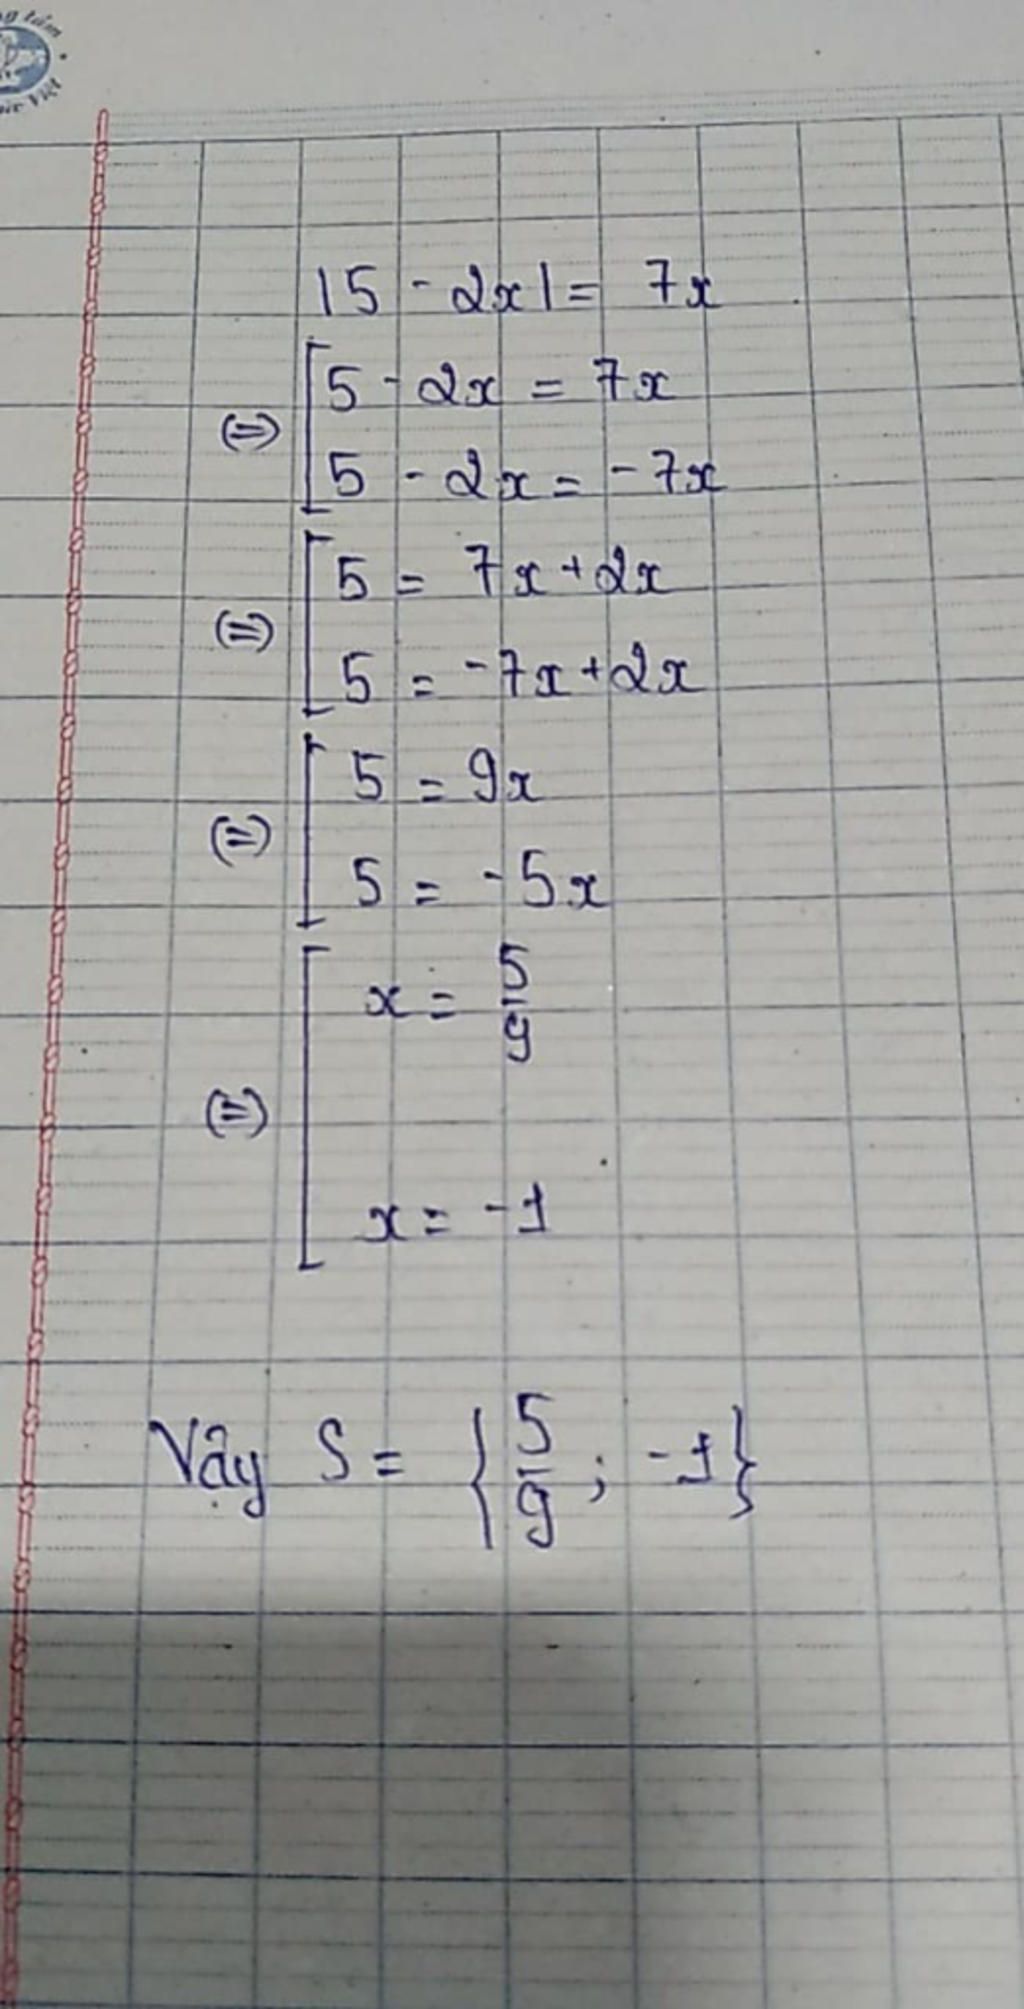 |5 - 2x| = 7x
(=) [ 5 - 2x = 7x
5 - 2x = -7x
(=) [ 5 = 7x + 2x
5 = -7x + 2x
(=) [ 5 = 9x
5 = -5x
(=) [ x = 5/9
x = -1
Vậy S = { 5/9 ; -1 }